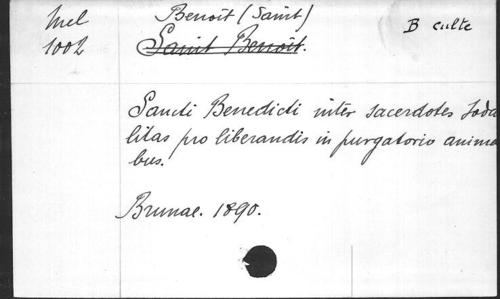 Mel
1002
Benoit (Saint)
B culte
Saint Benoit.
Sancti Benedicti inter sacerdotes Soda
litas pro liberandis in purgatorio anima
bus.
Brunae. 1890.